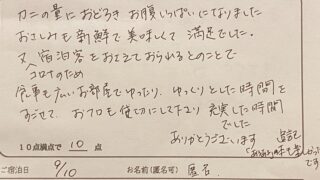 カニの量におどろき お腹いっぱいになりました
おさしみも新鮮で美味しくて 満足でした。
又 宿泊客をおさえておられるとのことで
コロナのため
食事も広いお部屋でゆったり、ゆっくりとした時間を
すごせて、お風呂も貸切にして下さり 充実した時間
でした
ありがとうございます
追記
です
10点満点で 10 点
ご宿泊日 9/10 お名前(匿名可) 匿名